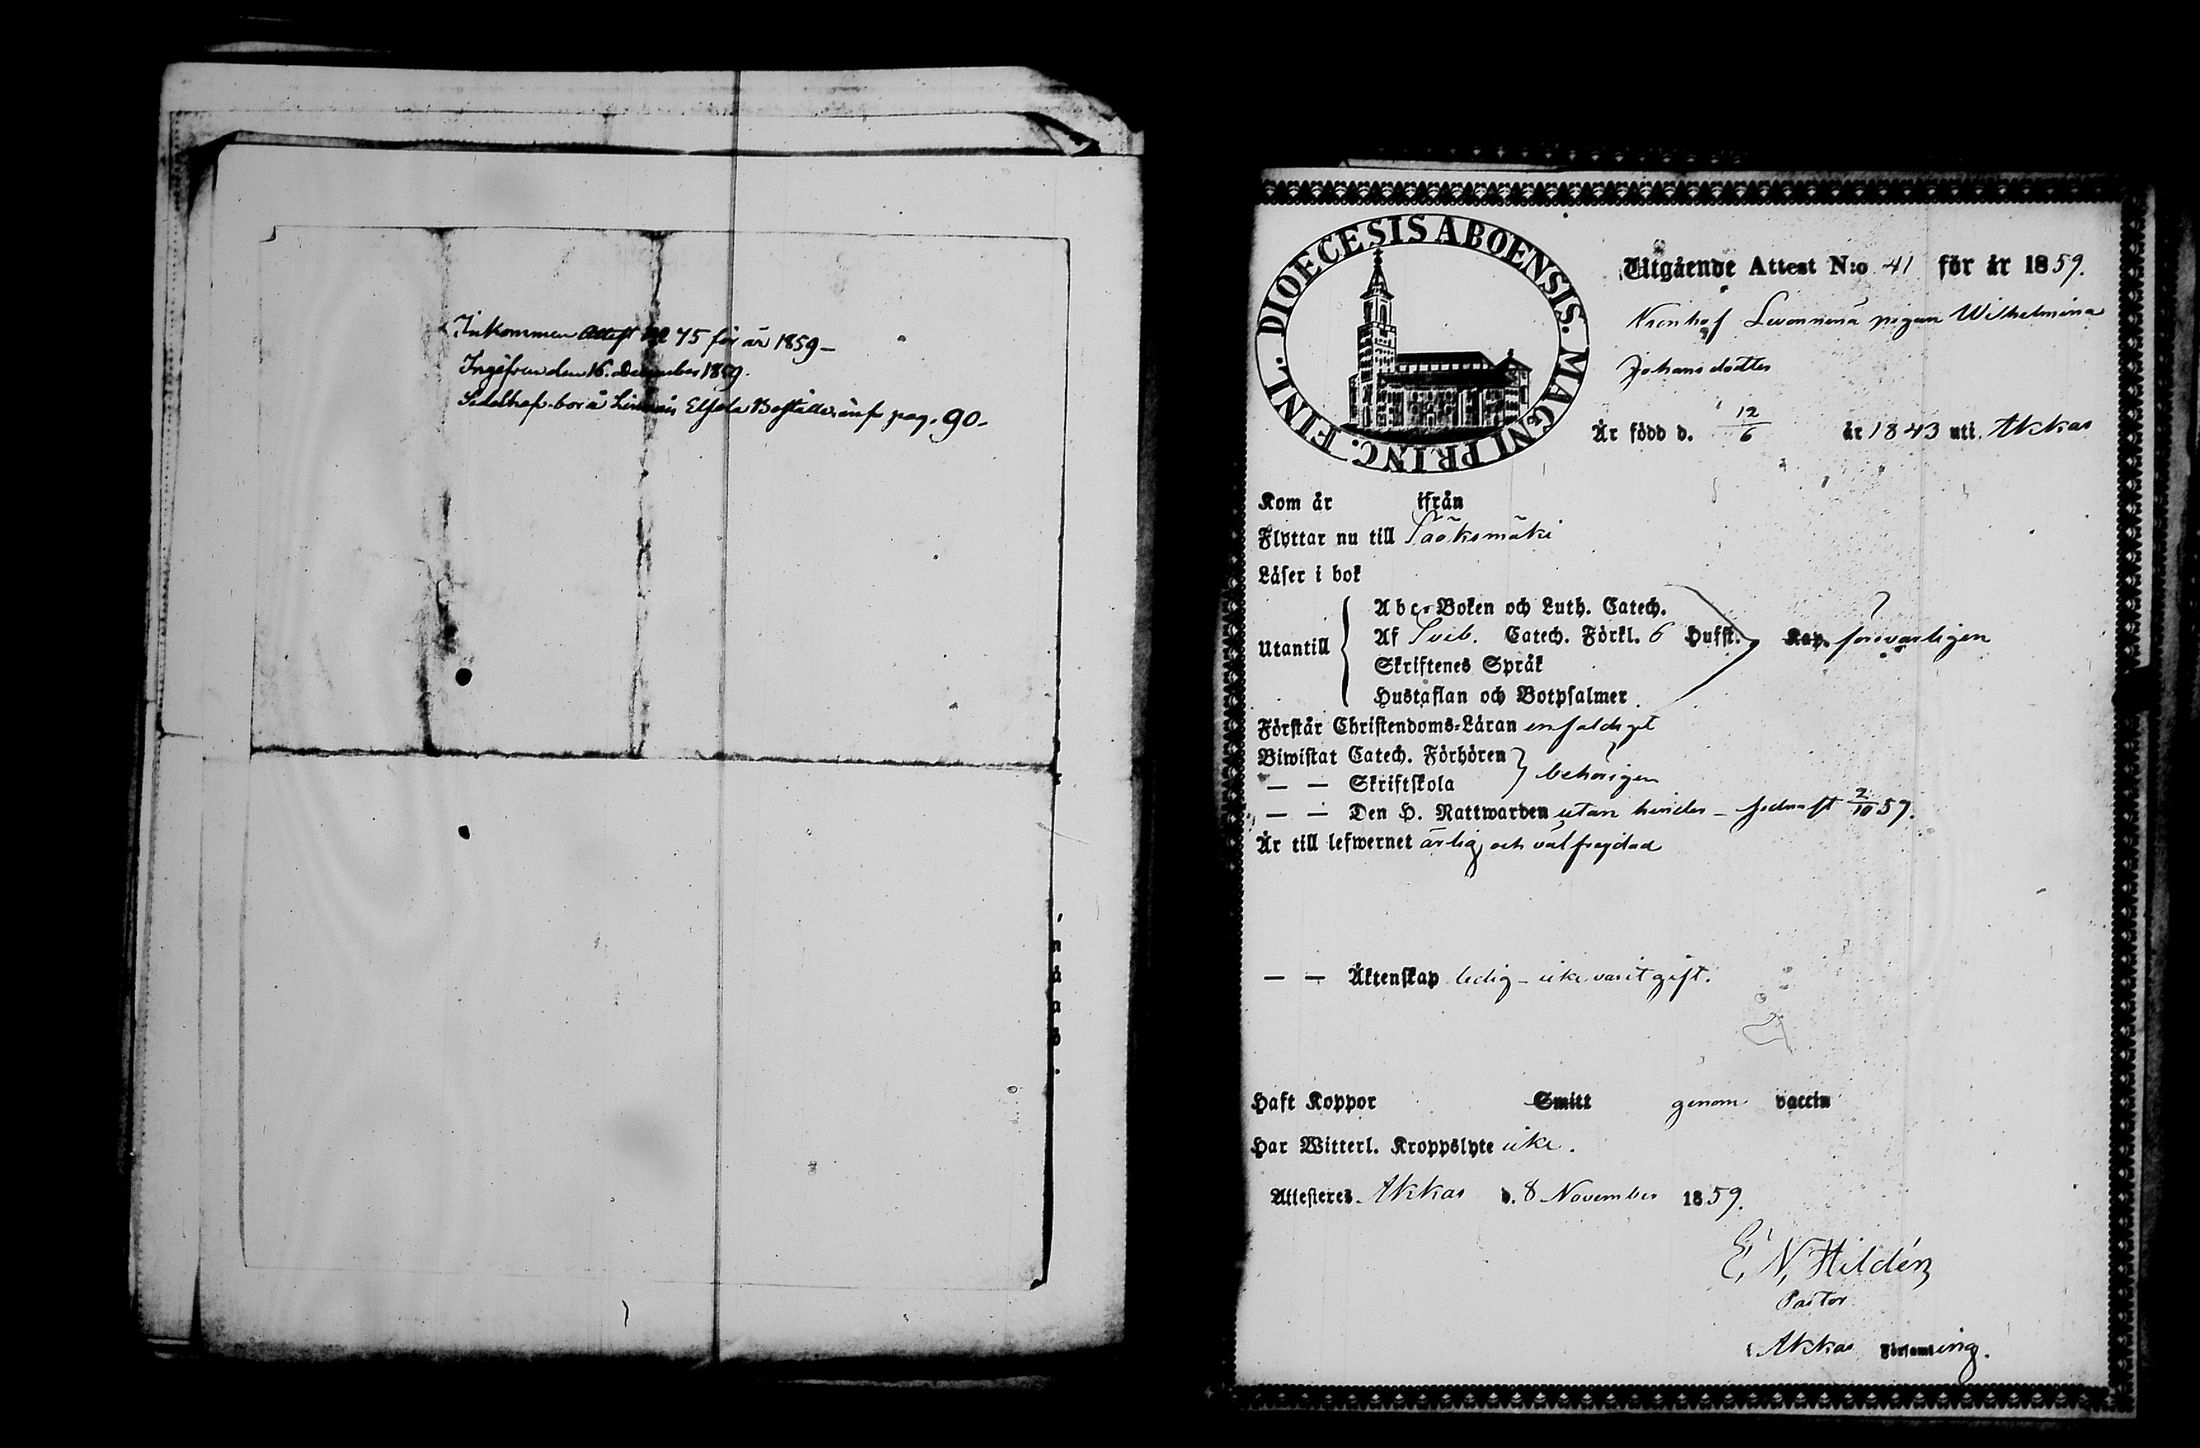 Inkommen Attest No 75 för år 1859 –
Ingifven den 16. December 1859.
pag. 90 –
DIOECESIS ABOENSIS. MAGNI PRINC. FINL.
Utgående Attest N:o 41 för år 1859.
pigan Wilhelmina
Johansdotter
Är född d. 12/6 år 1843 uti Akkas
Kom år ifrån
Flyttar nu till Sääksmäki
Läser i bok
Utantill
Abc-Boken och Luth. Catech.
Af Sveb. Catech. Förkl. 6 Hufst. Kap. försvarligen
Skriftenes Språk
Hustaflan och Botpsalmer
Förstår Christendoms-Läran enfaldigt
Biwistat Catech. Förhören
— — Skriftskola behörigen
— — Den H. Nattwarden utan hinder – sednast 2/10 59.
Är till lefwernet ärlig och välfrejdad
— — Äktenskap ledig – icke varit gift.
Haft Koppor Smitt genom vaccin
Har Witterl. Kroppslyte icke.
Attesteres Akkas d. 8 November 1859.
E. N. Hildén
Pastor
i Akkas Församling.